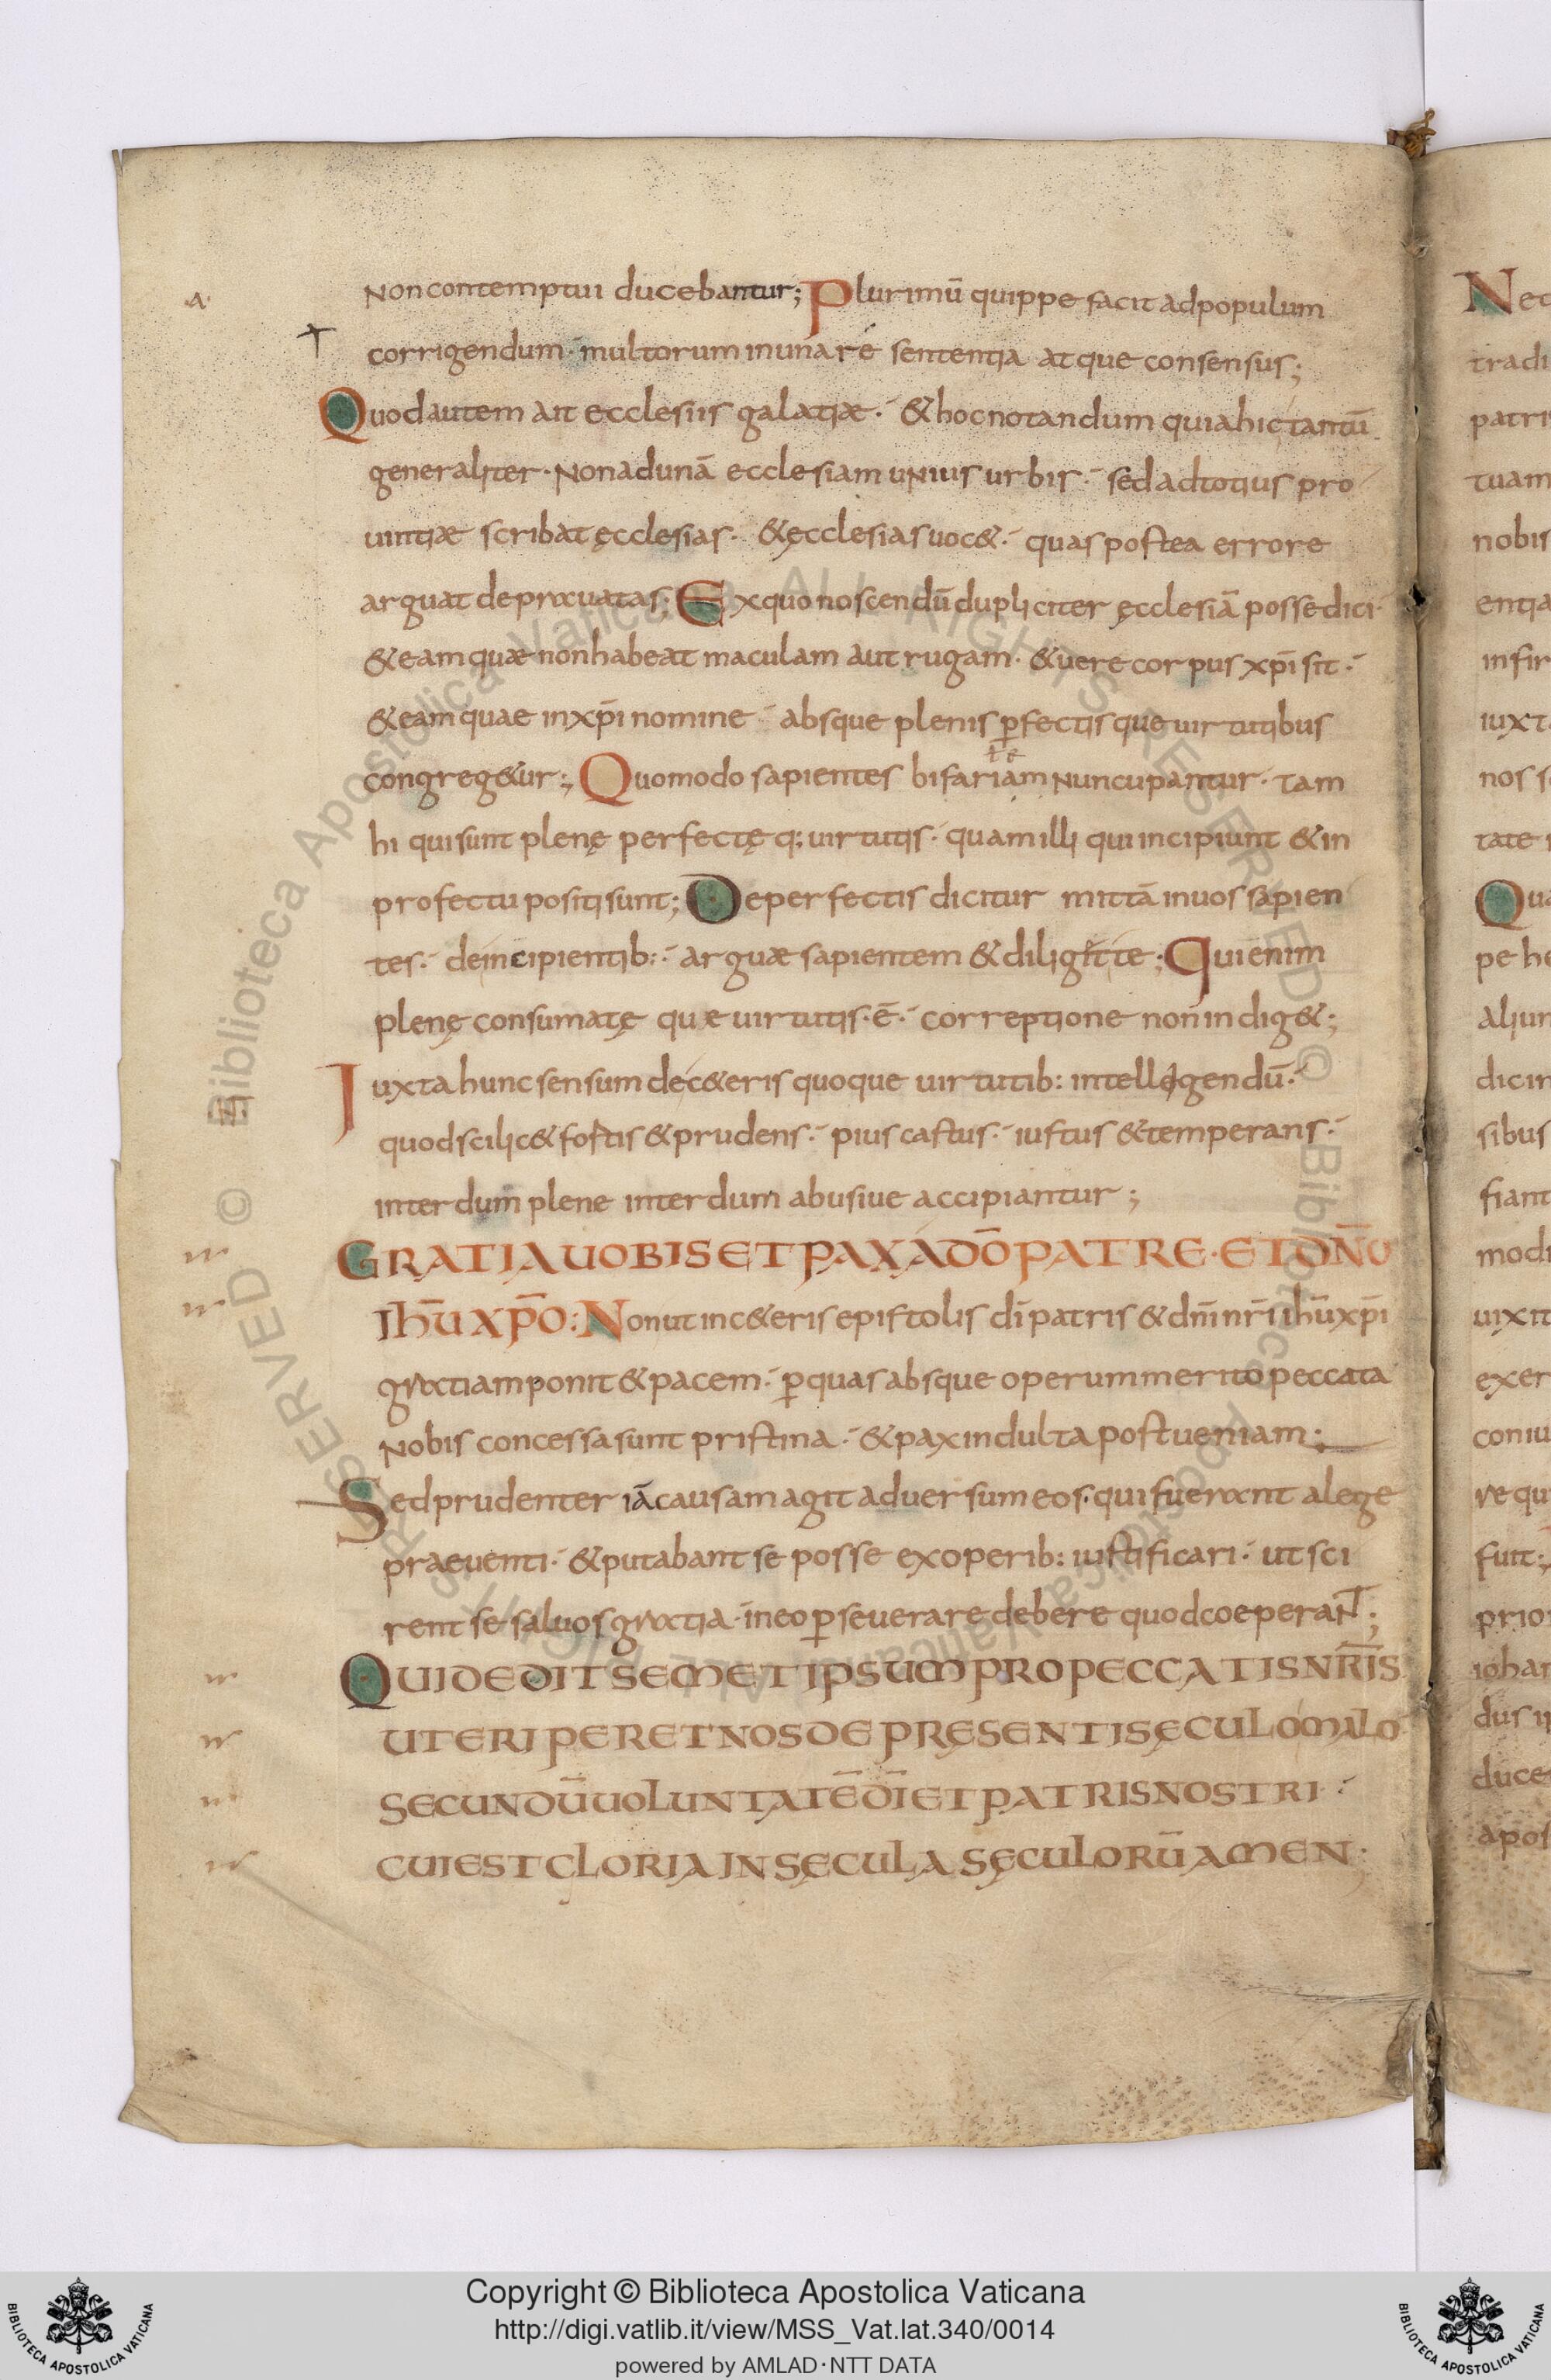 .a.
Non contemptui ducebantur; Plurimū quippe facit ad populum
corrigendum· multorum in una ré sententia atque consensus;
Quod autem ait ecclesiis galatiæ·́ & hoc notandum quia hic tantū
generaliter· Non ad unā ecclesiam unius urbis·́ sed ad totius pro
uintiæ scribat ęcclesias·́ & ęcclesias uoc&·́ quas postea errore
arguat deprauatas; Ex quo noscendū dupliciter ęcclesiā posse dici·
& eam quæ non habeat maculam aut rugam· & uere corpus xp̄i sit·́
& eam quae in xp̄i nomine·́ absque plenis ꝑfectisque uirtutibus
congreg&ur; Quomodo sapientes bifariam Nuncupantur· tam
hi qui sunt plenę perfectę q; uirtutis·́ quam illi qui incipiunt & in
profectu positi sunt; De perfectis dicitur mittā in uos sapien
tes·́ de incipientib:·́ arguæ sapientem & diligit te; Qui enim
plenę consumatę quæ uirtutis· ē·́ correptione non indig&;
Iuxta hunc sensum de c&eris quoque uirtutib: intellegendū·́
quod scilic& fortis & prudens·́ pius castus·́ iustus & temperans·́
interdum plene interdum abusiue accipiantur;
GRATIA UOBIS ET PAX A DŌ PATRE· ET DN̄O
IHŪ XP̄O: Non ut in c&eris epistolis dī patris & dn̄i nr̄i ihū xp̄i
gratiam ponit & pacem·́ ꝑ quas absque operum merito peccata
Nobis concessa sunt pristina·́ & pax indulta post ueniam;
Sed prudenter iā causam agit aduersum eos· qui fuerant a lege
praeuenti·́ & putabant se posse ex operib: iustificari·́ ut sci
rent se saluos gratia· in eo ꝑseuerare debere quod coeperant;
QUI DEDIT SEMET IPSUM PRO PECCATIS NR̄IS
UT ERIPERET NOS DE PRĘSENTI SĘCULO MALO
SECUNDŪ UOLUNTATĒ DĪ ET PATRIS NOSTRI·́
CUI EST GLORIA IN SĘCULA SĘCULORŪ AMEN·
Copyright © Biblioteca Apostolica Vaticana
http://digi.vatlib.it/view/MSS_Vat.lat.340/0014
powered by AMLAD·NTT DATA
BIBLIOTECA APOSTOLICA VATICANA
BIBLIOTECA APOSTOLICA VATICANA